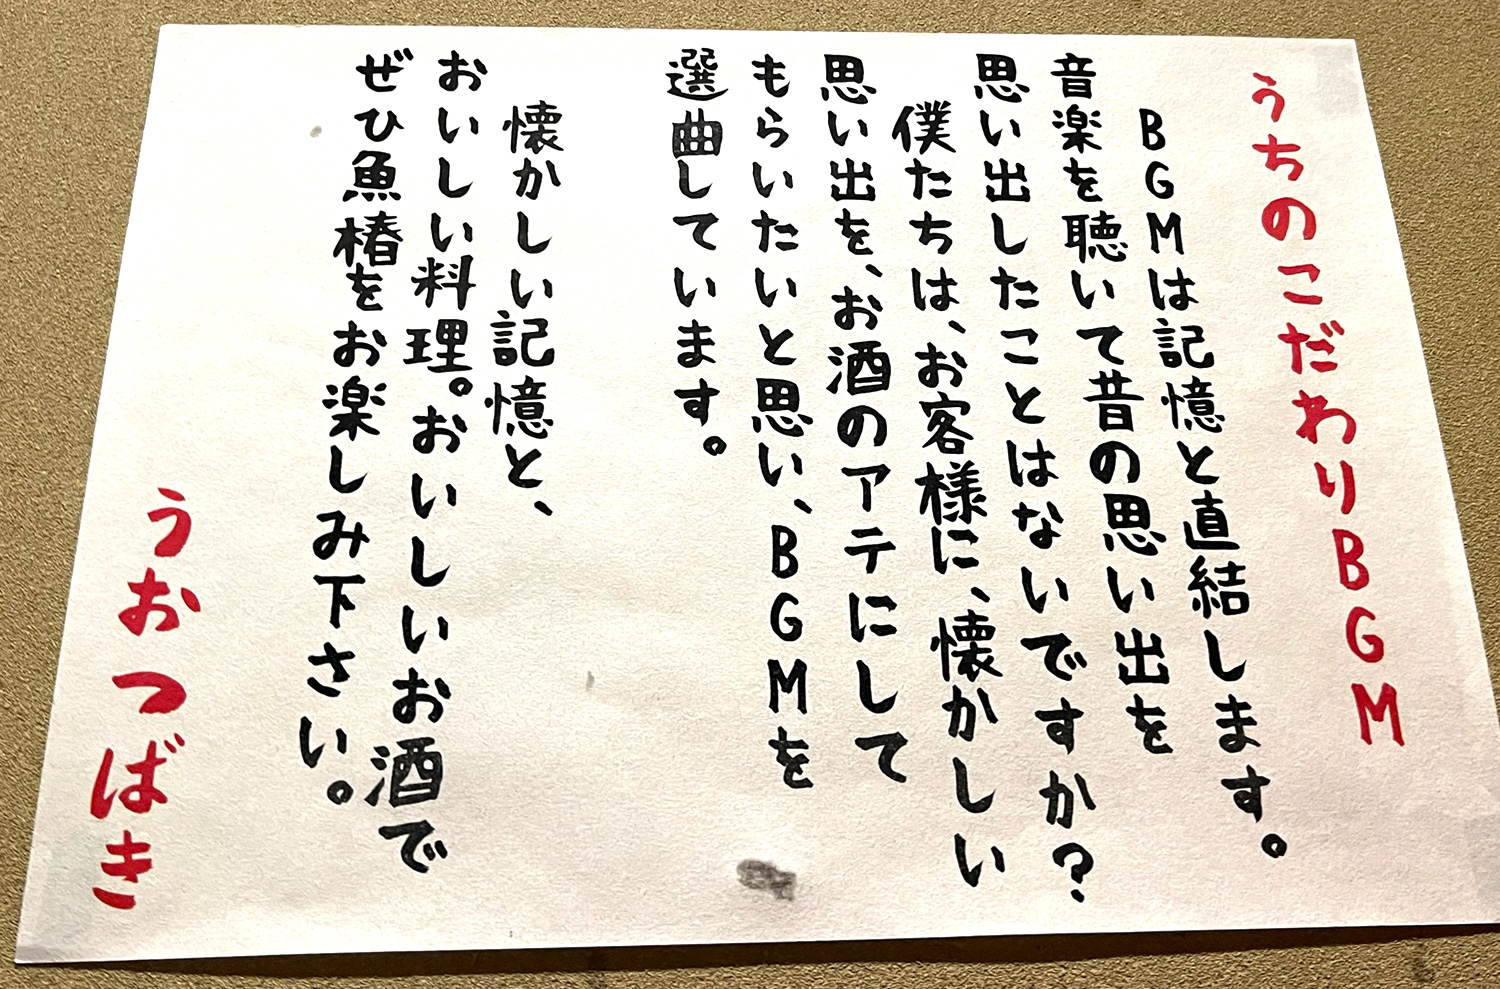 うちのこだわりBGM
BGMは記憶と直結します。
音楽を聴いて昔の思い出を
思い出したことはないですか?
僕たちは、お客様に、懐かしい
思い出を、お酒のアテにして
もらいたいと思い、BGMを
選曲しています。
懐かしい記憶と、
おいしい料理。おいしいお酒で
ぜひ魚椿をお楽しみ下さい。
うおつばき